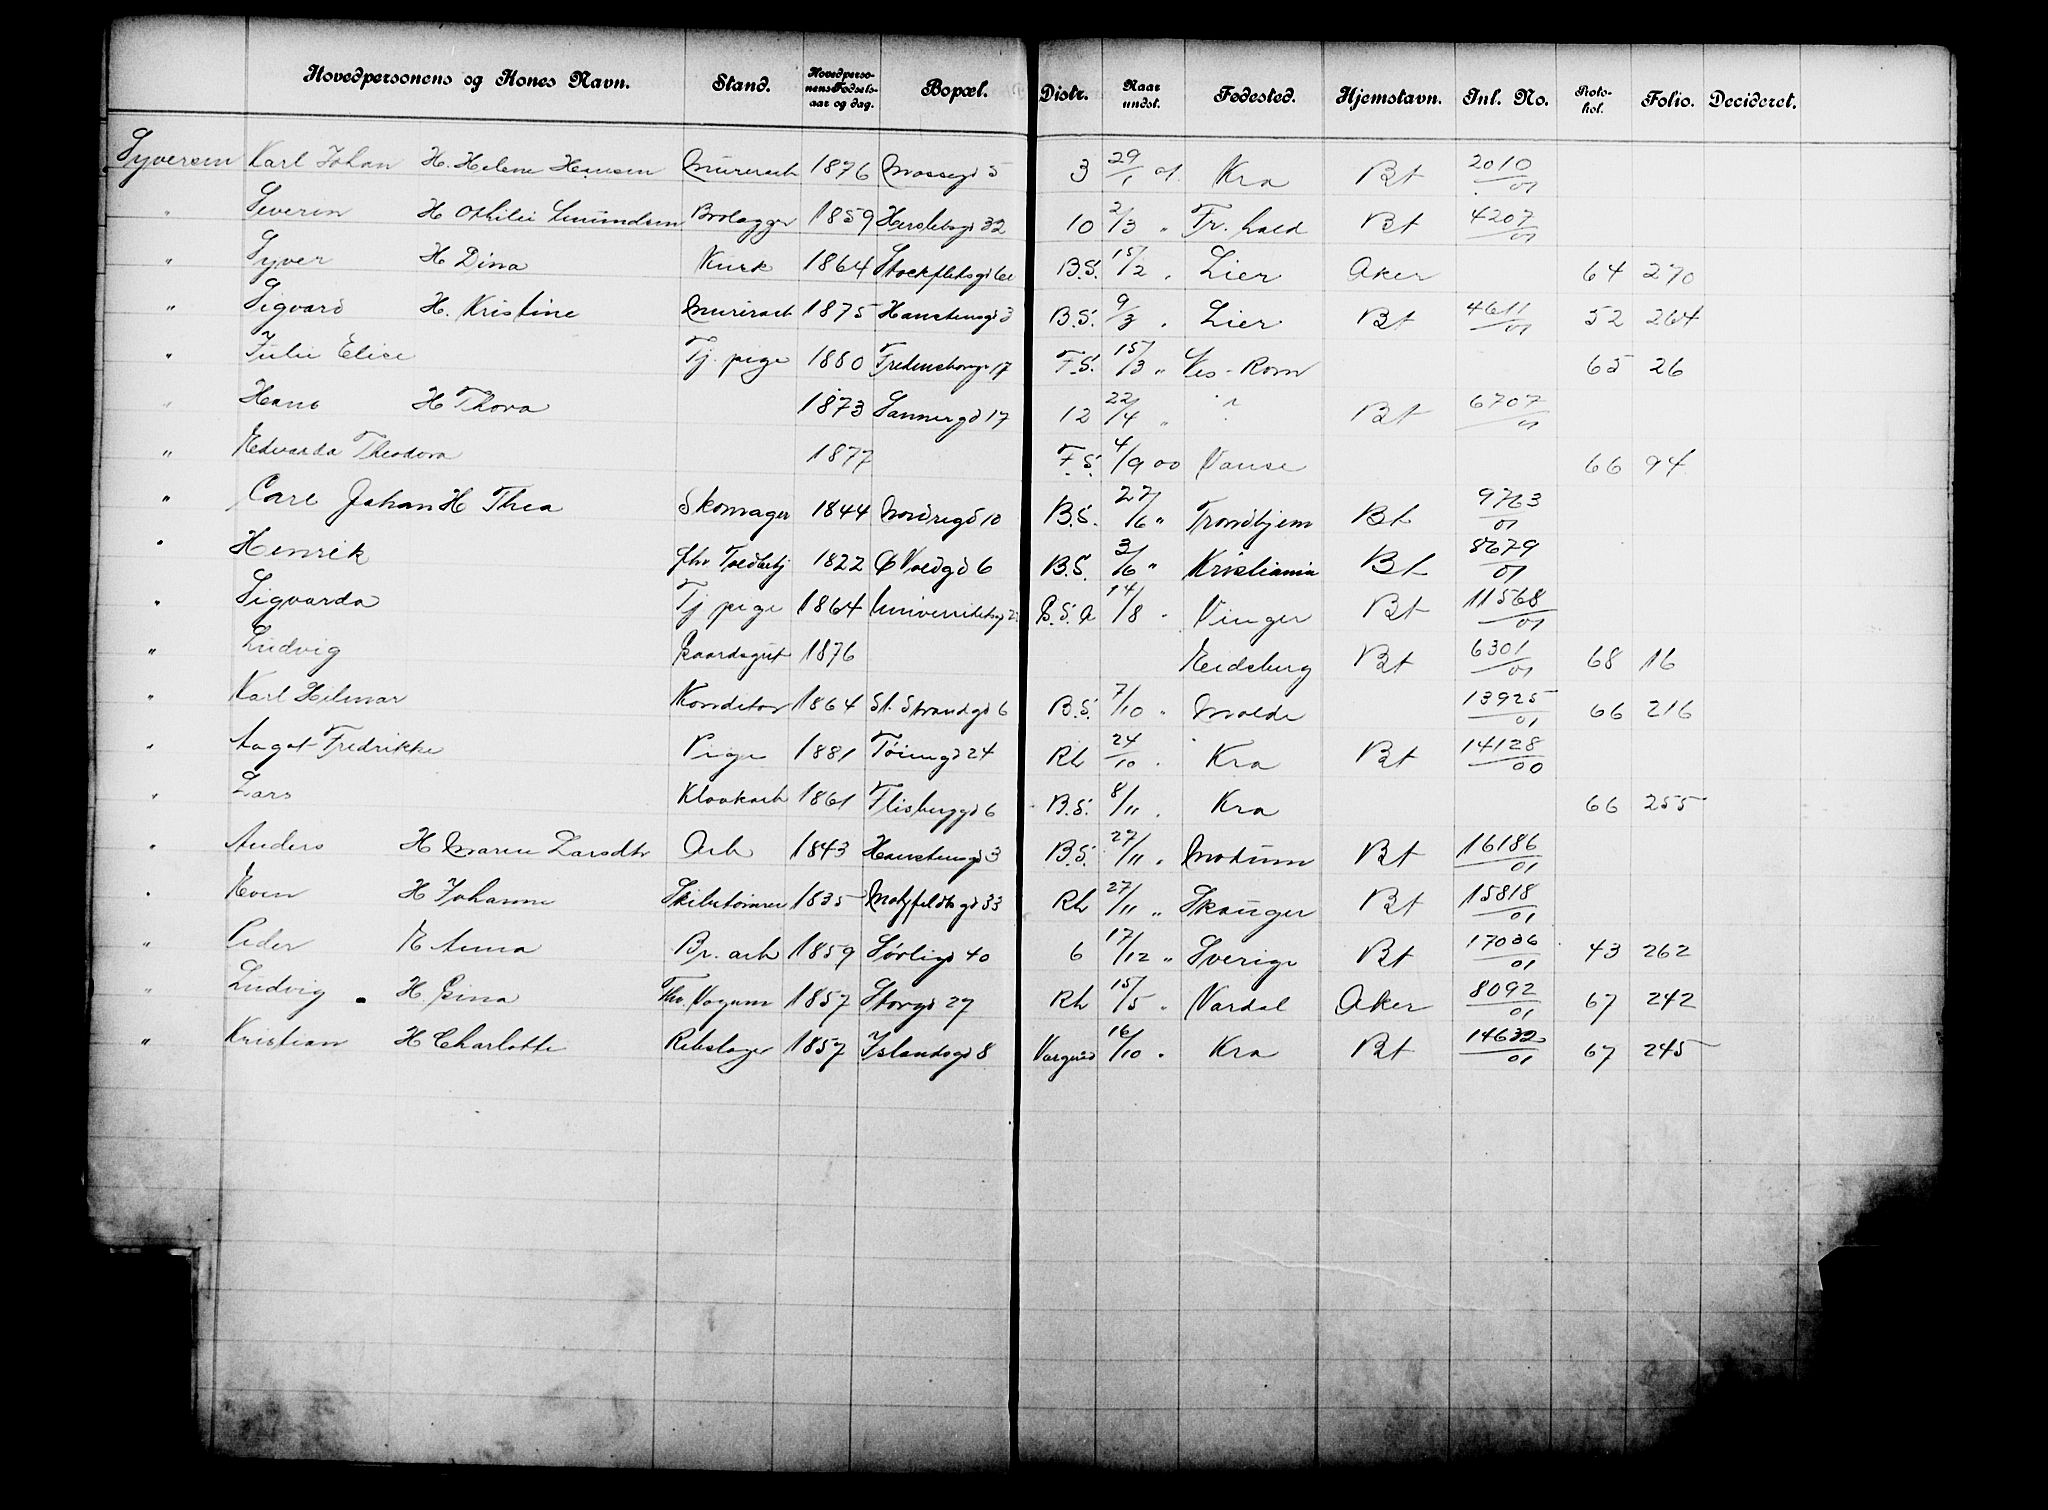 Hovedpersonens og Kones Navn. Stand. Hovedpersonens Fødselsaar og dag. Bopæl. Distr. Naar undst. Fødested. Hjemstavn. Inl. No. Protokol. Folio. Decideret.
Syversen Karl Johan H. Helene Hansen Murerarb 1876 Mossegd 5 3 29/1 01. Kra Bt 2010/01
" Severin H Othilie Brolægger 1859 Herslebsgd 32 10 2/3 " Fr. hald Bt 4207/01
" Syver H Dina Kusk 1864 B.S. 15/2 " Lier Aker 64 270
" Sigvard H. Kristine Murerarb 1875 Hanstensgd 3 B.S. 9/3 " Lier Bt 4611/01 52 264
" Julie Elise Tj. pige 1880 17 F.S. 15/3 " 65 26
" Hans H Thora 1873 Sannergd 17 12 22/4 " " Bt 6707/01
" Edvarda Theodora 1877 F.S. 4/9 00 Vanse 66 94
" Carl Johan H Thea Skomager 1844 Nordregd 10 B.S. 27/6 " Trondhjem Bt 9763/01
" Henrik fhv Toldbetj 1822 Ø Voldgd 6 B.S. 3/6 " Kristiania Bt 8679/01
" Sigvarda Tj pige 1864 14/8 " Vinger Bt 11568/01
" Ludvig Gaardsgut 1876 Eidsberg Bt 6301/01 68 16
" Karl Hilmar Konditor 1864 St. Strandgd 6 B.S. 7/10 " Molde 13925/01 66 216
" Aagot Fredrikke Pige 1881 Tøiengd 24 Rh 24/10 " Kra Bt 14128/00
" Lars Kloakarb 1861 Flisberggd 6 B.S. 8/11 " Kra 66 255
" Anders H Maren Larsdtr Arb 1843 Hanstensgd 3 B.S. 27/11 " Modum Bt 16186/01
" Even H Johanne Skibstømmer 1835 Motzfeldtsgd 33 Rh 27/11 " Skauger Bt 15818/01
" Peder E Anna Br. arb 1859 Sørligd 40 6 17/12 " Sverige Bt 17036/01 43 262
" Ludvig H. Gina 1857 Storgd 27 Rh 15/5 " Vardal Aker 8092/01 67 242
" Kristian H Charlotte Rebslager 1857 Islandsgd 8 16/10 " Kra Bt 14632/01 67 245